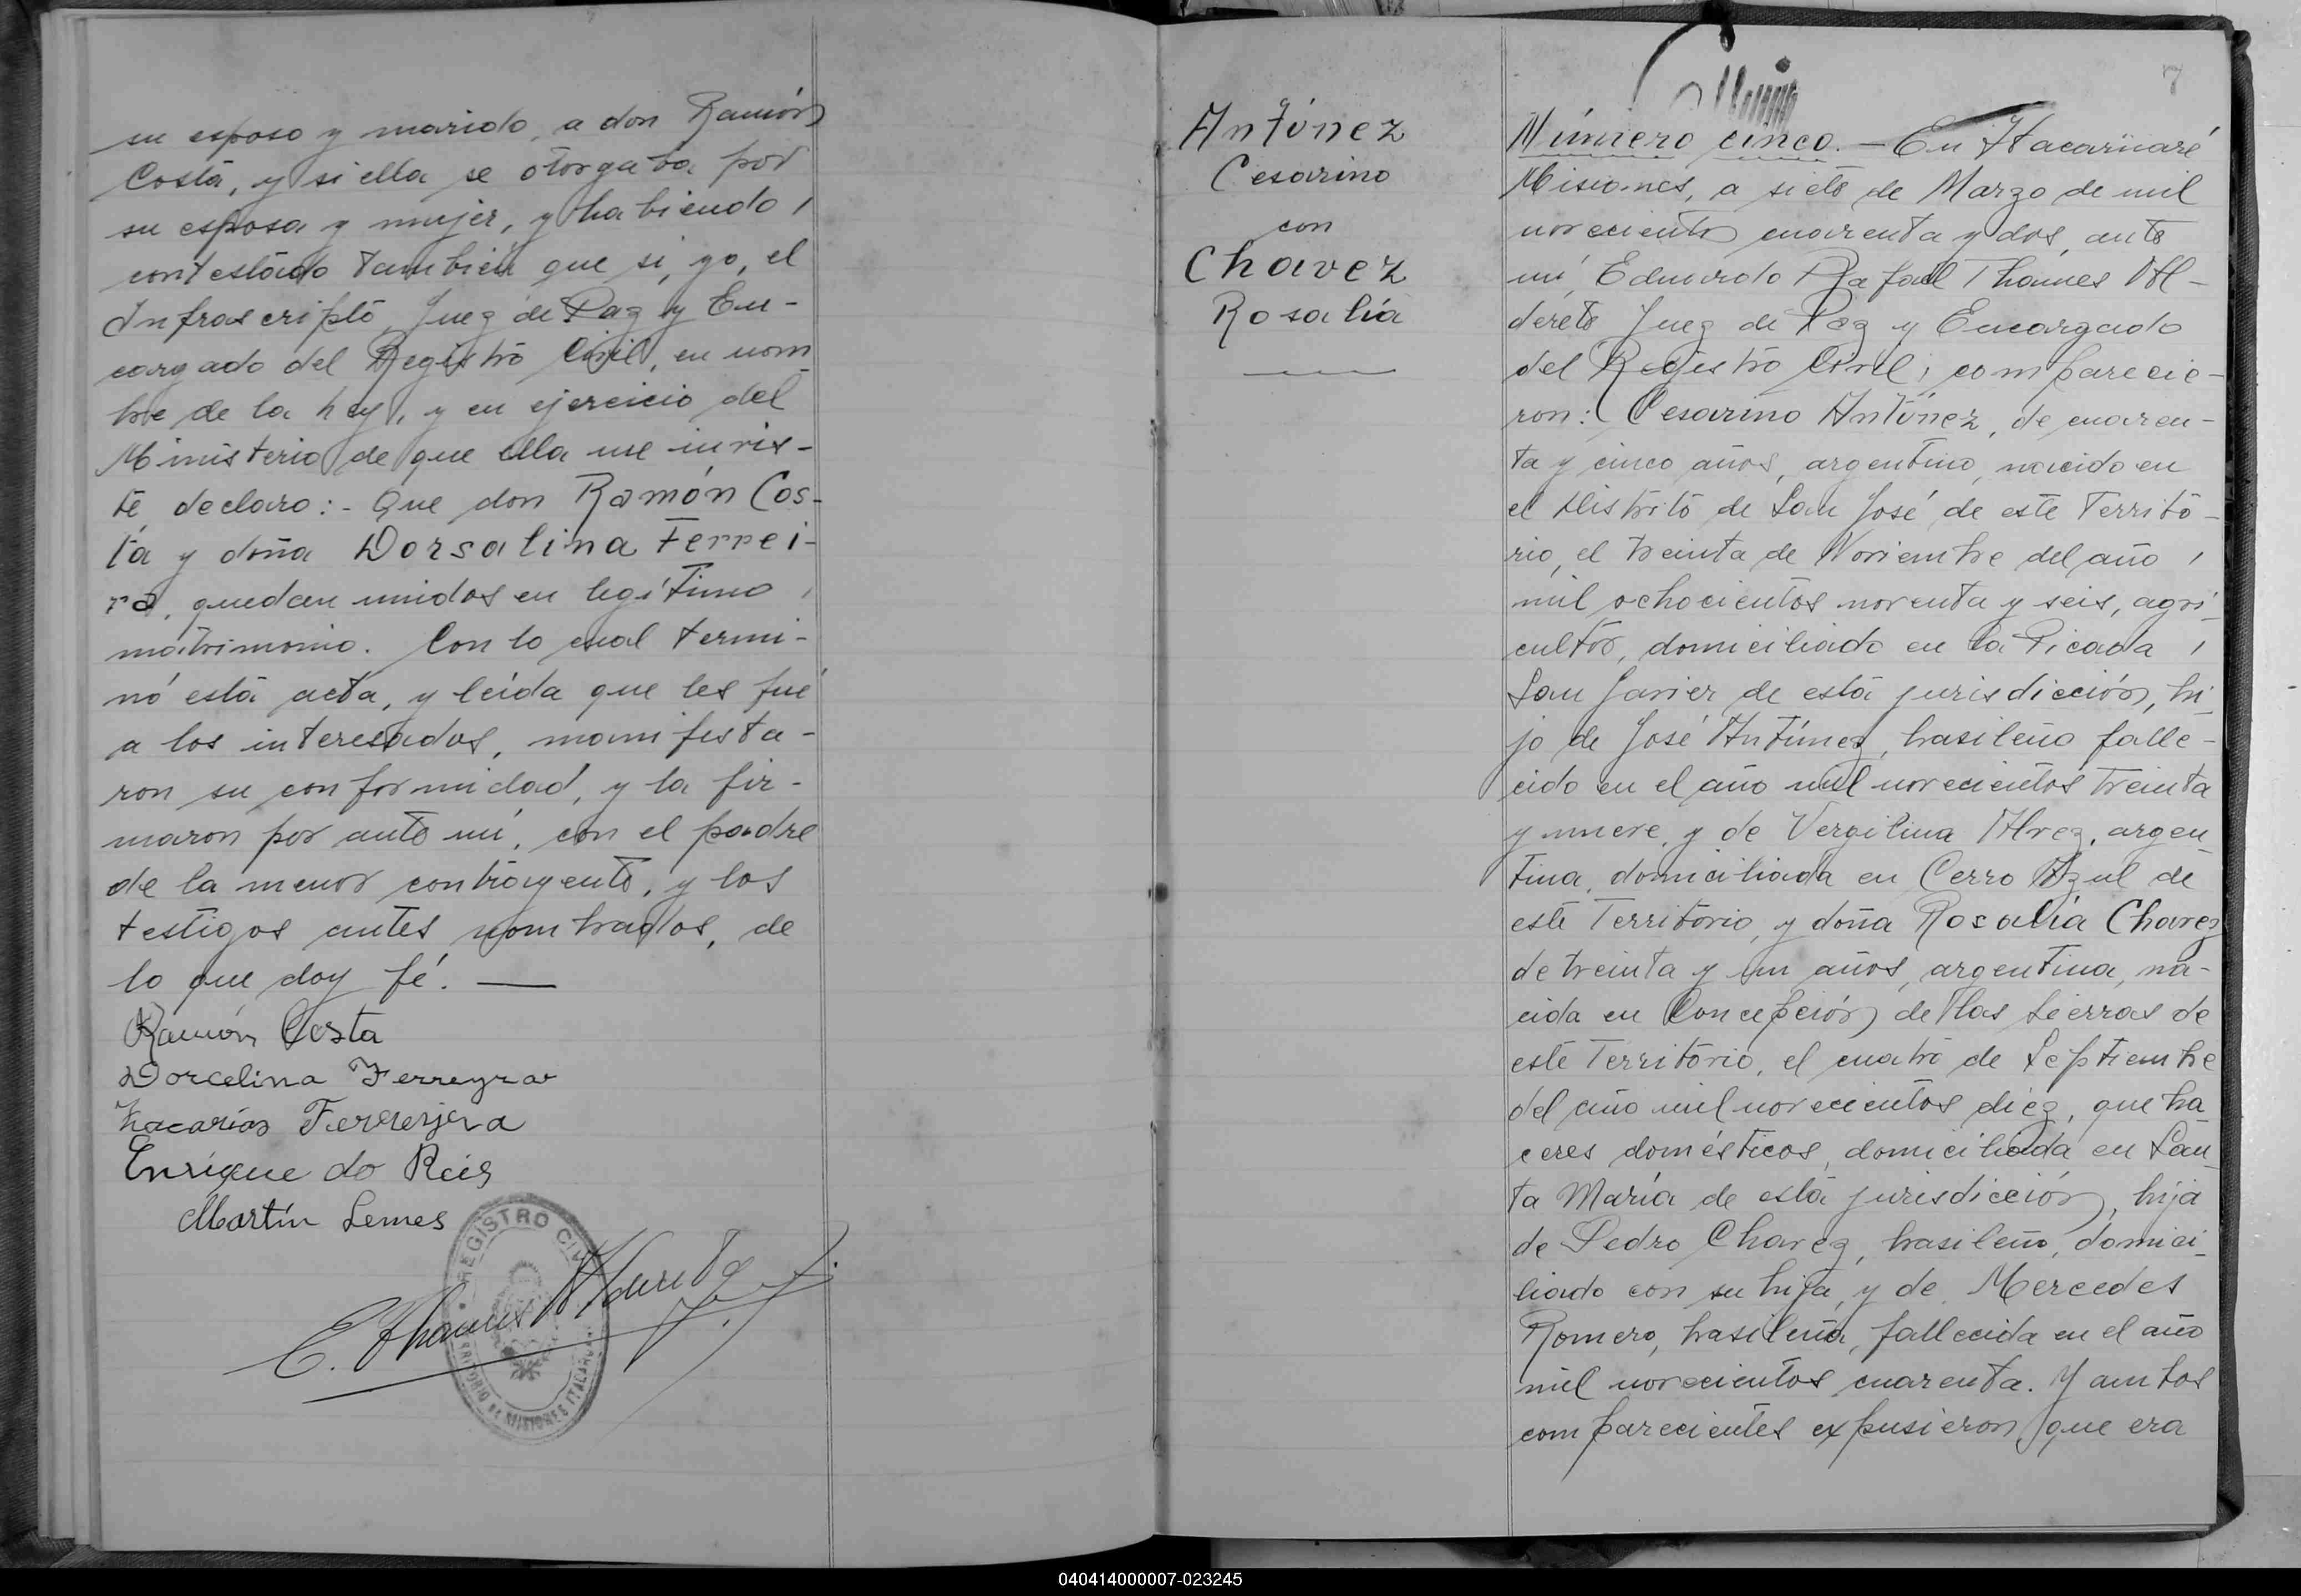 su esposo y marido, a don Ramón
Costa, y si ella se otorgaba por
su esposa y mujer, y habiendo
contestado también que si, yo, el
Infrascripto, Juez de Paz y En-
cargado del Registro Civil, en nom
bre de la Ley, y en ejercicio del
Ministerio de que ella me invis-
te, declaro:- Que don Ramón Cos-
ta y doña Dorsalina Ferrei-
ra, quedan unidos en legítimo
matrimonio. Con lo cual termi-
nó esta acta, y leída que les fué
a los interesados, manifesta-
ron su conformidad, y la fir-
maron por ante mí, con el padre
de la menor contrayente, y los
testigos antes nombrados, de
lo que doy fé. —
Ramón Costa
Dorcelina Ferreyra
Zacarías Ferrerjera
Enrique do Reis
Martín Lemes
REGISTRO CIVIL
TERRITORIO DE MISIONES ITACARUARE
E. Thames Alderete
7
Antúnez
Cesarino
con
Chavez
Rosalía
Número cinco. — En Itacaruaré
Misiones, a siete de Marzo de mil
novecientos cuarenta y dos, ante
mí, Eduardo Rafael Thames Al-
derete Juez de Paz y Encargado
del Registro Civil; comparecie-
ron: Cesarino Antúnez, de cuaren-
ta y cinco años, argentino, nacido en
el Distrito de San José de este Territo-
rio, el treinta de Noviembre del año
mil ochocientos noventa y seis, agri-
cultor, domiciliado en la Picada
San Javier de esta jurisdicción, hi-
jo de José Antúnez, brasileño falle-
cido en el año mil novecientos treinta
y nueve, y de Vergilina Alvez, argen-
tina, domiciliada en Cerro Azul de
este Territorio, y doña Rosalía Chavez
de treinta y un años, argentina, na-
cida en Concepción de las Sierras de
este Territorio, el cuatro de Septiembre
del año mil novecientos diez, queha
ceres domésticos, domiciliada en San-
ta María de esta jurisdicción, hija
de Pedro Chavez, brasileño, domici-
liado con su hija, y de Mercedes
Romero, brasileña, fallecida en el año
mil novecientos cuarenta. Y ambos
comparecientes expusieron que era
040414000007-023245